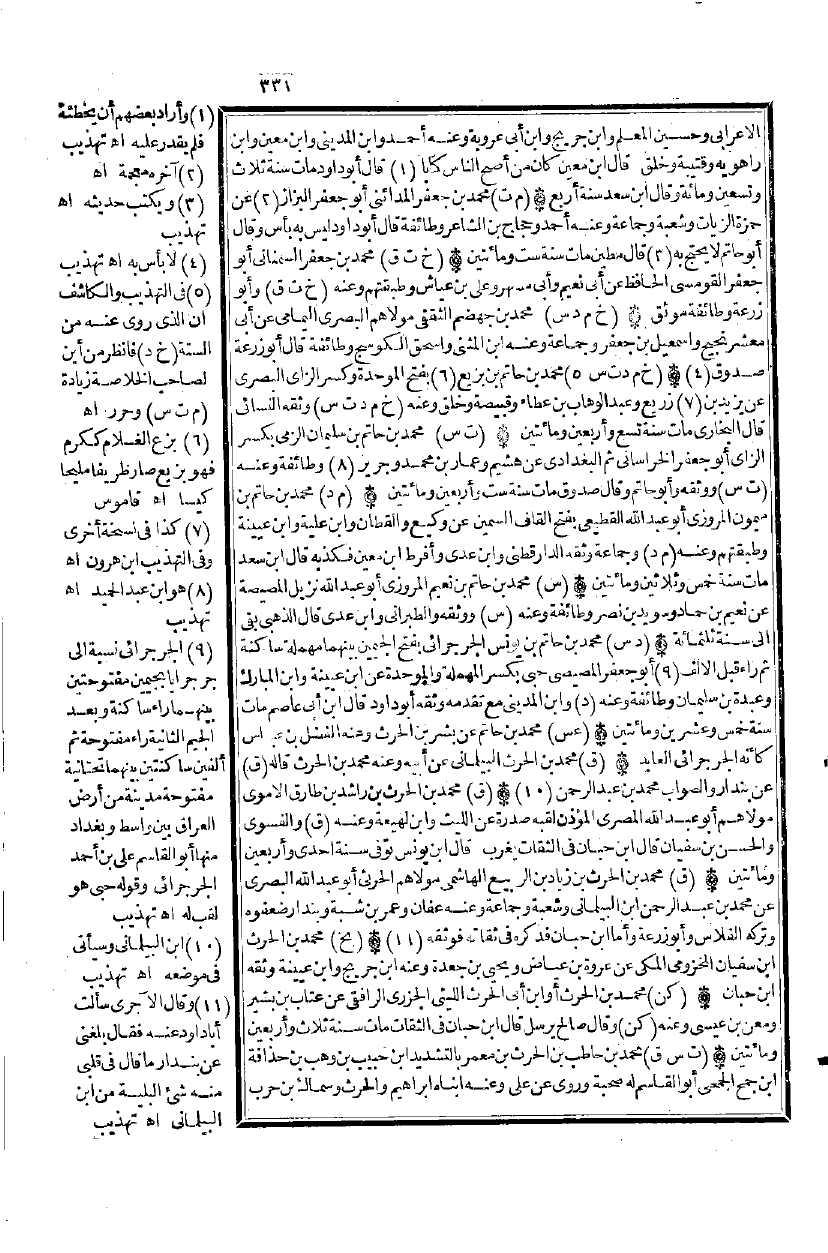 ٣٣١
الاعرابى وحسين المعلم وابن جريج وابن أبى عروبة وعنه أحمد وابن المدينى وابن معين وابن
راهويه وقتيبة وخلق قال ابن معين كان من أصح الناس كتابا (١) قال أبو داود مات سنة ثلاث
وتسعين ومائة وقال ابن سعد سنة أربع (م ت) محمد بن جعفر المدائنى أبو جعفر البزاز (٢) عن
حمزة الزيات وشعبة وجماعة وعنه أحمد وحجاج بن الشاعر وطائفة قال أبو داود ليس به بأس وقال
أبو حاتم لا يحتج به (٣) قال مطين مات سنة ست ومائتين (خ ت ق) محمد بن جعفر السمنانى أبو
جعفر القومسى الحافظ عن أبى نعيم وأبى مسهر وعلى بن عياش وطبقتهم وعنه (خ ت ق) وأبو
زرعة وطائفة موثق (خ م د س) محمد بن جهضم الثقفى مولاهم البصرى اليمامى عن أبى
معشر نجيح واسمعيل بن جعفر وجماعة وعنه ابن المثنى واسحق الكوسج وطائفة قال أبو زرعة
صدوق (٤) (خ م د ت س ٥) محمد بن حاتم بن بزيع (٦) بفتح الموحدة وكسر الزاى البصرى
عن يزيد بن (٧) زريع وعبد الوهاب بن عطاء وقبيصة وخلق وعنه (خ م د ت س) وثقه النسائى
قال البخارى مات سنة تسع وأربعين ومائتين (ت س) محمد بن حاتم بن سليمان الزمى بكسر
الزاى أبو جعفر الخراسانى ثم البغدادى عن هشيم وعمار بن محمد وجرير (٨) وطائفة وعنه
(ت س) ووثقه وأبو حاتم وقال صدوق مات سنة ست وأربعين ومائتين (م د) محمد بن حاتم بن
ميمون المروزى أبو عبد الله القطيعى بفتح القاف السمين عن وكيع والقطان وابن علية وابن عيينة
وطبقتهم وعنه (م د) وجماعة وثقه الدارقطنى وابن عدى وأفرط ابن معين فكذبه قال ابن سعد
مات سنة خمس وثلاثين ومائتين (س) محمد بن حاتم بن نعيم المروزى أبو عبد الله نزيل المصيصة
عن نعيم بن حماد وسويد بن نصر وطائفة وعنه (س) ووثقه والطبرانى وابن عدى قال الذهبى بقى
الى سنة ثلثمائة (د س) محمد بن حاتم بن يونس الجرجرائى بفتح الجيمين بينهما مهملة ساكنة
ثم راء قبل الالف (٩) أبو جعفر المصيصى حبى بكسر المهملة والموحدة عن ابن عيينة وابن المبارك
وعبدة بن سليمان وطائفة وعنه (د) وابن المدينى مع تقدمه وثقه أبو داود قال ابن أبى عاصم مات
سنة خمس وعشرين ومائتين (عس) محمد بن حاتم عن بشر بن الحرث وعنه الفضل بن عباس
كأنه الجرجرائى العابد (ق) محمد بن الحرث البيلمانى عن أبيه وعنه محمد بن الحرث قاله (ق)
عن بندار والصواب محمد بن عبد الرحمن (١٠) (ق) محمد بن الحرث بن راشد بن طارق الاموى
مولاهم أبو عبد الله المصرى المؤذن لقبه صدرة عن الليث وابن لهيعة وعنه (ق) والفسوى
والحسن بن سفيان قال ابن حبان فى الثقات يغرب قال ابن يونس توفى سنة احدى وأربعين
ومائتين (ق) محمد بن الحرث بن زياد بن الربيع الهاشمى مولاهم الحرثى أبو عبد الله البصرى
عن محمد بن عبد الرحمن ابن البيلمانى وشعبة وجماعة وعنه عفان وعمر بن شبة وبندار ضعفوه
وتركه الفلاس وأبو زرعة وأما ابن حبان فذكره فى ثقاته فوثقه (١١) (بخ) محمد بن الحرث
ابن سفيان المخزومى المكى عن عروة بن عياض ويحيى بن جعدة وعنه ابن جريج وابن عيينة وثقه
ابن حبان (كن) محمد بن الحرث أو ابن أبى الحرث الليثى الجزرى الرافقى عن عتاب بن بشير
ومعن بن عيسى وعنه (كن) وقال صالح يرسل قال ابن حبان فى الثقات مات سنة ثلاث وأربعين
ومائتين (ت س ق) محمد بن حاطب بن الحرث بن معمر بالتشديد ابن حبيب بن وهب بن حذافة
ابن جمح الجمحى أبو القاسم له صحبة وروى عن على وعنه ابناه ابراهيم والحرث وسماك بن حرب
(١) وأراد بعضهم أن يخطئة
فلم يقدر عليه اه تهذيب
(٢) آخره معجمة اه
(٣) ويكتب حديثه اه
تهذيب
(٤) لا بأس به اه تهذيب
(٥) فى التهذيب والكاشف
أن الذى روى عنه من
الستة (خ د) فانظر من أين
لصاحب الخلاصة زيادة
(م ت س) وحرر اه
(٦) بزع الغلام ككرم
فهو بزيع صار ظريفا مليحا
كيسا اه قاموس
(٧) كذا فى نسخة أخرى
وفى التهذيب ابن هرون اه
(٨) هو ابن عبد الحميد اه
تهذيب
(٩) الجرجرائى نسبة الى
جرجرايا بجيمين مفتوحتين
بينهما راء ساكنة وبعد
الجيم الثانية راء مفتوحة ثم
ألفين ساكنتين بينهما تحتانية
مفتوحة مدينة من أرض
العراق بين واسط وبغداد
منها أبو القاسم على بن أحمد
الجرجرائى وقوله حبى هو
لقب له اه تهذيب
(١٠) ابن البيلمانى وسيأتى
فى موضعه اه تهذيب
(١١) وقال الآجرى سألت
أبا داود عنه فقال بلغنى
عن بندار ما قال فى قلبى
منه شئ البلية من ابن
البيلمانى اه تهذيب